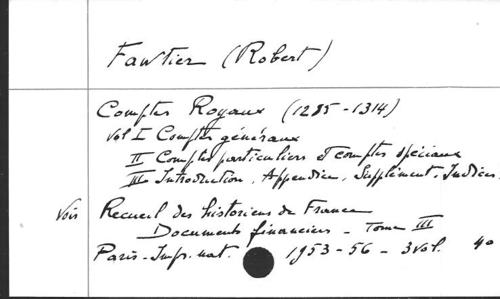 Fawtier (Robert)
Comptes Royaux (1285-1314)
Vol I Comptes généraux
II Comptes particuliers et comptes spéciaux
III Introduction, Appendice, Supplément, Indices.
Vois Recueil des historiens de France
Documents financiers - Tome III
Paris - Impr. nat. 1953-56 - 3 vol. 4o